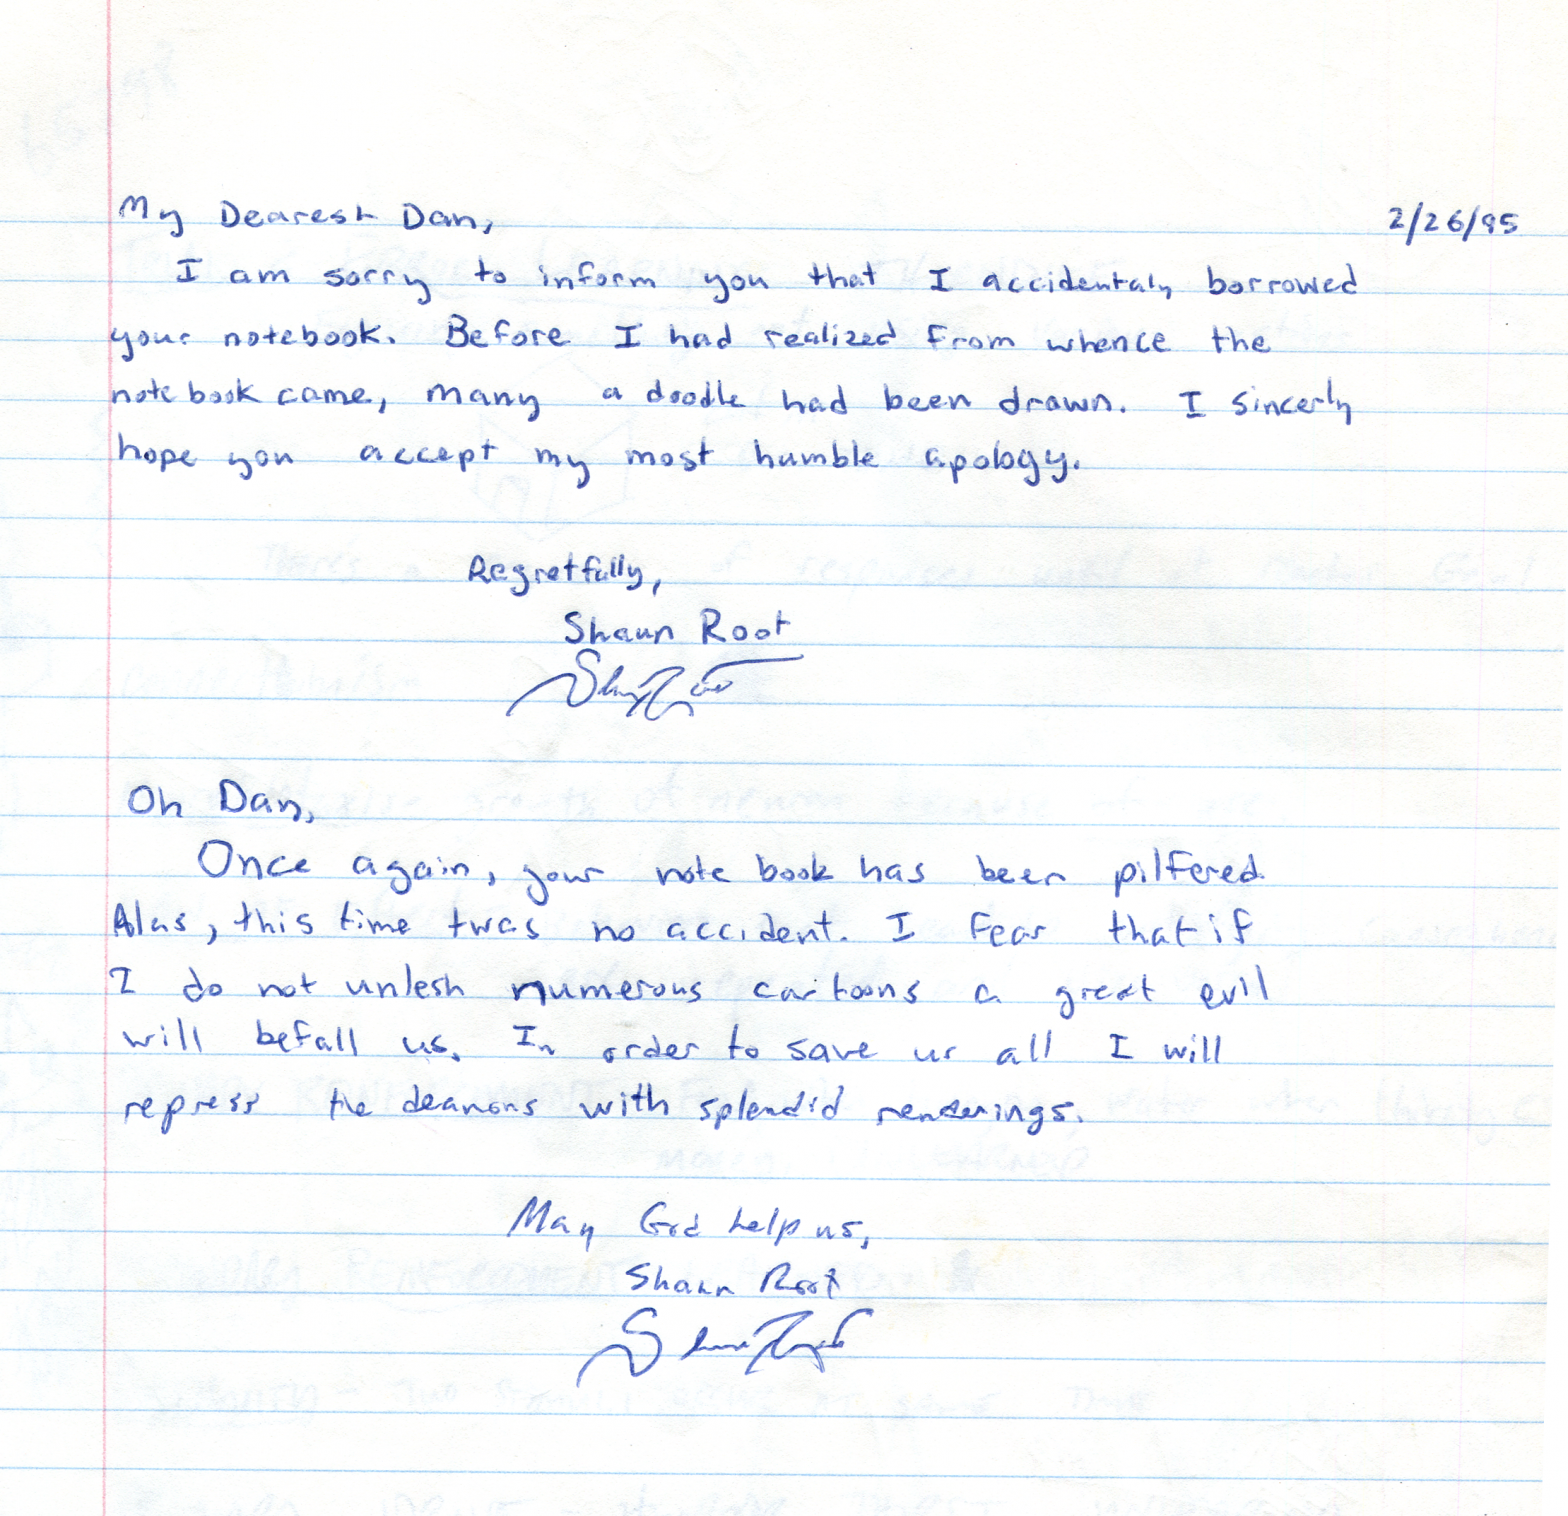 My Dearest Dan,
2/26/95
I am sorry to inform you that I accidentaly borrowed
your notebook. Before I had realized from whence the
notebook came, many a doodle had been drawn. I sincerly
hope you accept my most humble apology.
Regretfully,
Shaun Root
Shaun Root
Oh Dan,
Once again, your note book has been pilfered.
Alas, this time twas no accident. I fear that if
I do not unlesh numerous cartoons a great evil
will befall us. In order to save us all I will
repress the deamons with splendid renderings.
May God help us,
Shaun Root
Shaun Root